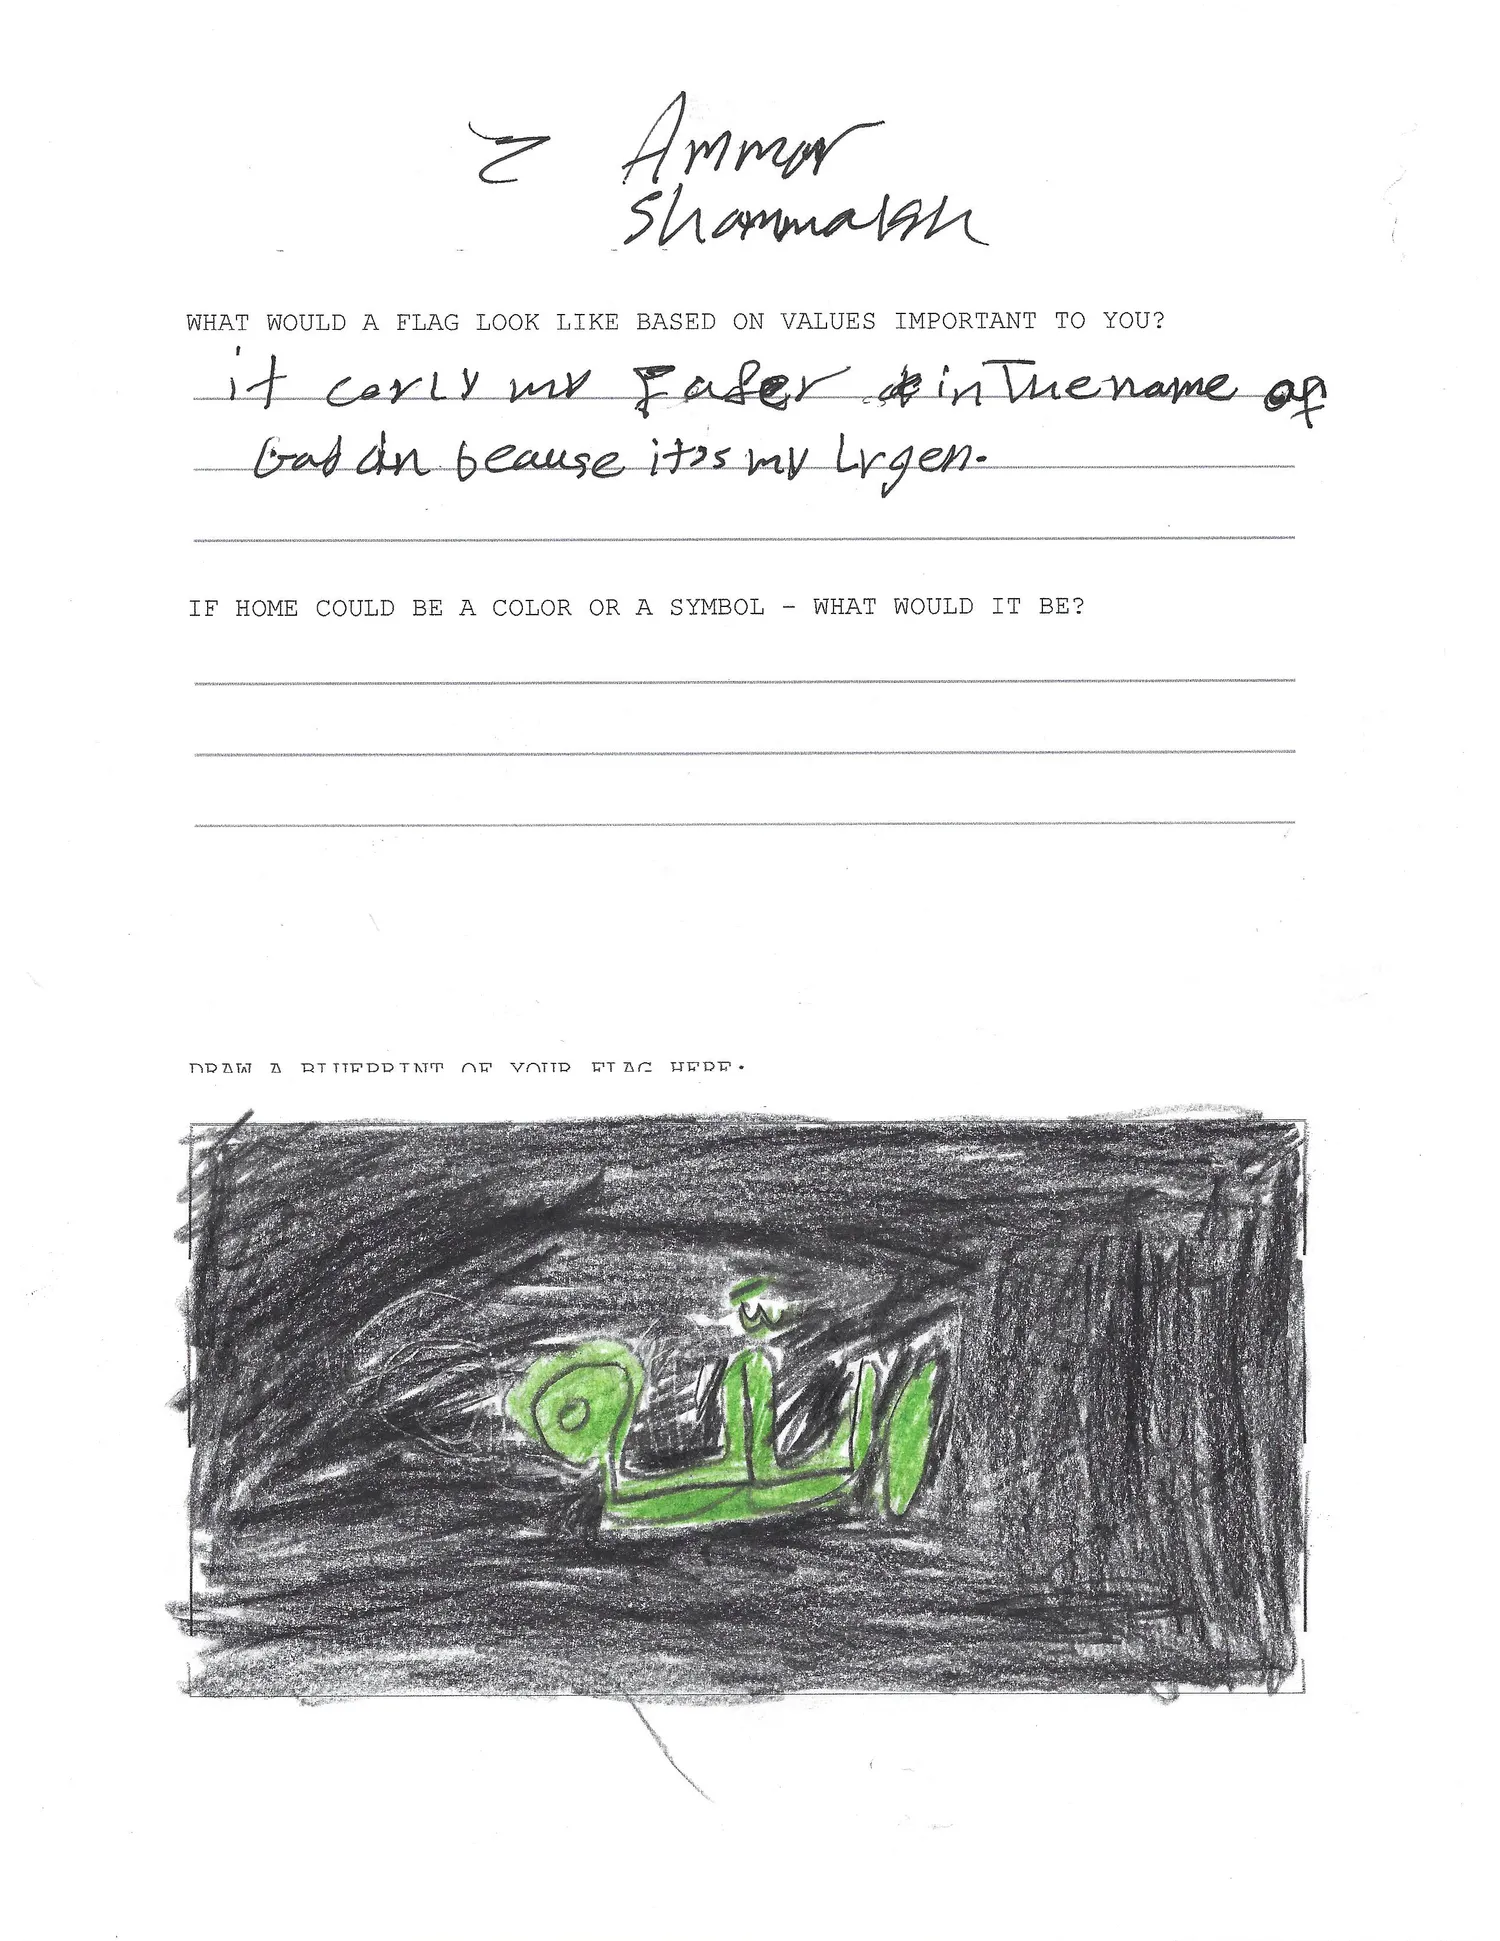 Ammar
Shammakh
WHAT WOULD A FLAG LOOK LIKE BASED ON VALUES IMPORTANT TO YOU?
it my in The name of
God beause it's my
IF HOME COULD BE A COLOR OR A SYMBOL - WHAT WOULD IT BE?
DRAW A BLUEPRINT OF YOUR FLAG HERE.
الله